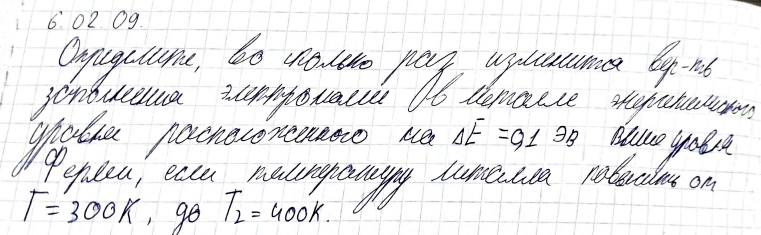 6.02.09.
Определите, во сколько раз изменится вер-ть
заполнения электронами в металле энергетического
уровня расположенного на ΔE = 0,1 эВ выше уровня
Ферми, если температуру металла повысить от
T = 300K, до T₂ = 400K.